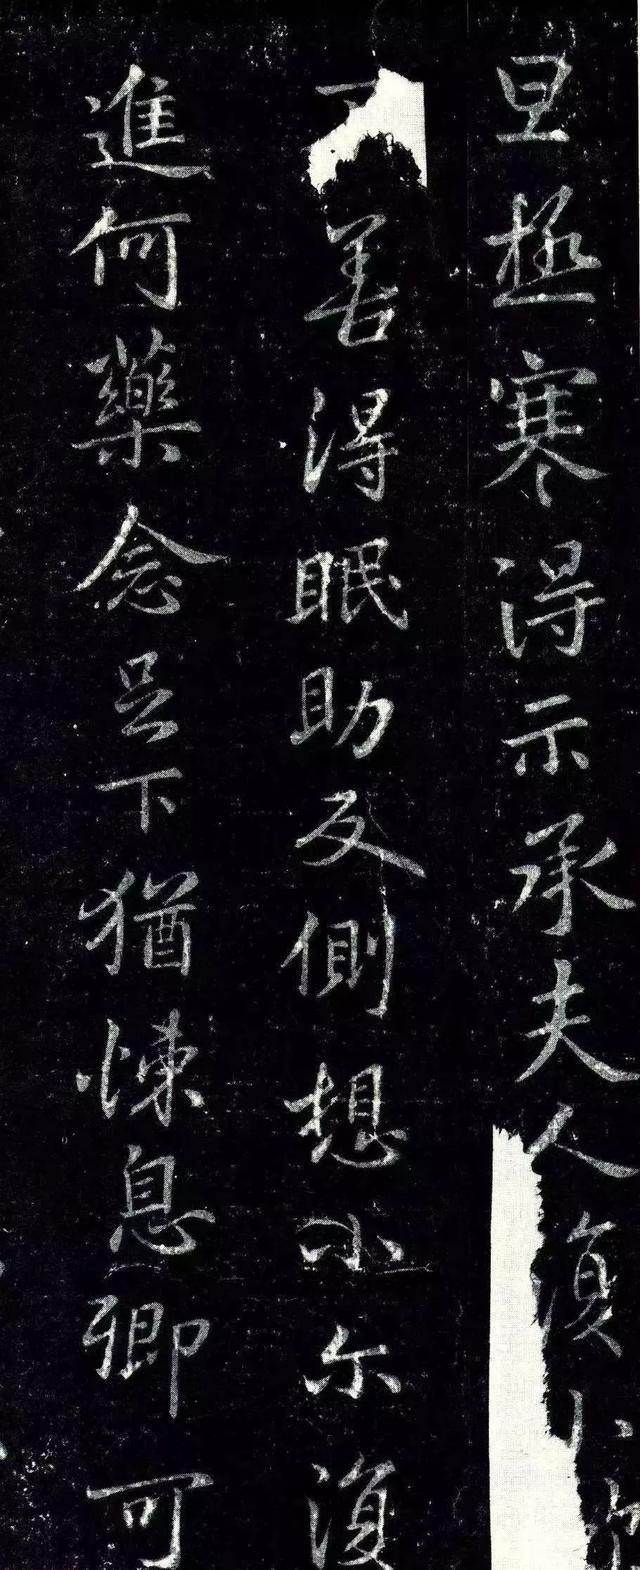 旦極寒得示承夫人復小
不善得眠助反側想小尔復
進何藥念足下猶悚息卿可